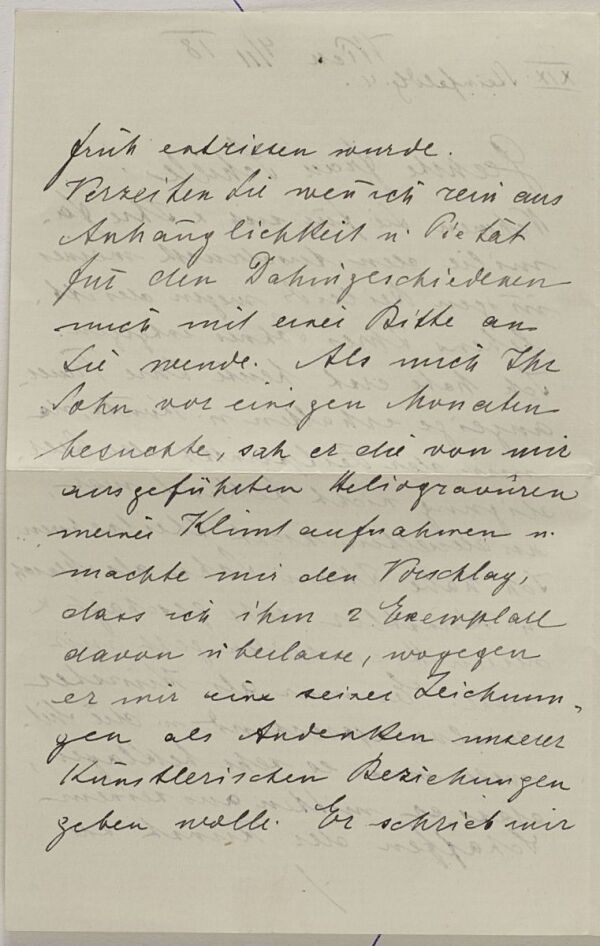 früh entrissen wurde.
Verzeihen Sie wenn ich rein aus
Anhänglichkeit u. Pietät
für den Dahingeschiedenen
mich mit einer Bitte an
Sie wende. Als mich Ihr
Sohn vor einigen Monaten
besuchte, sah er die von mir
ausgeführten Heliogravüren
meiner Klimtaufnahmen u.
machte mir den Vorschlag,
dass ich ihm 2 Exemplare
davon überlasse, wogegen
er mir eine seiner Zeichnun-
gen als Andenken unserer
Künstlerischen Beziehungen
geben wolle. Er schrieb mir